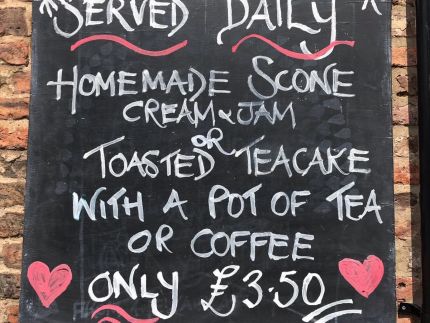 "SERVED DAILY"
HOMEMADE SCONE
CREAM & JAM
OR
TOASTED TEACAKE
WITH A POT OF TEA
OR COFFEE
ONLY £3.50